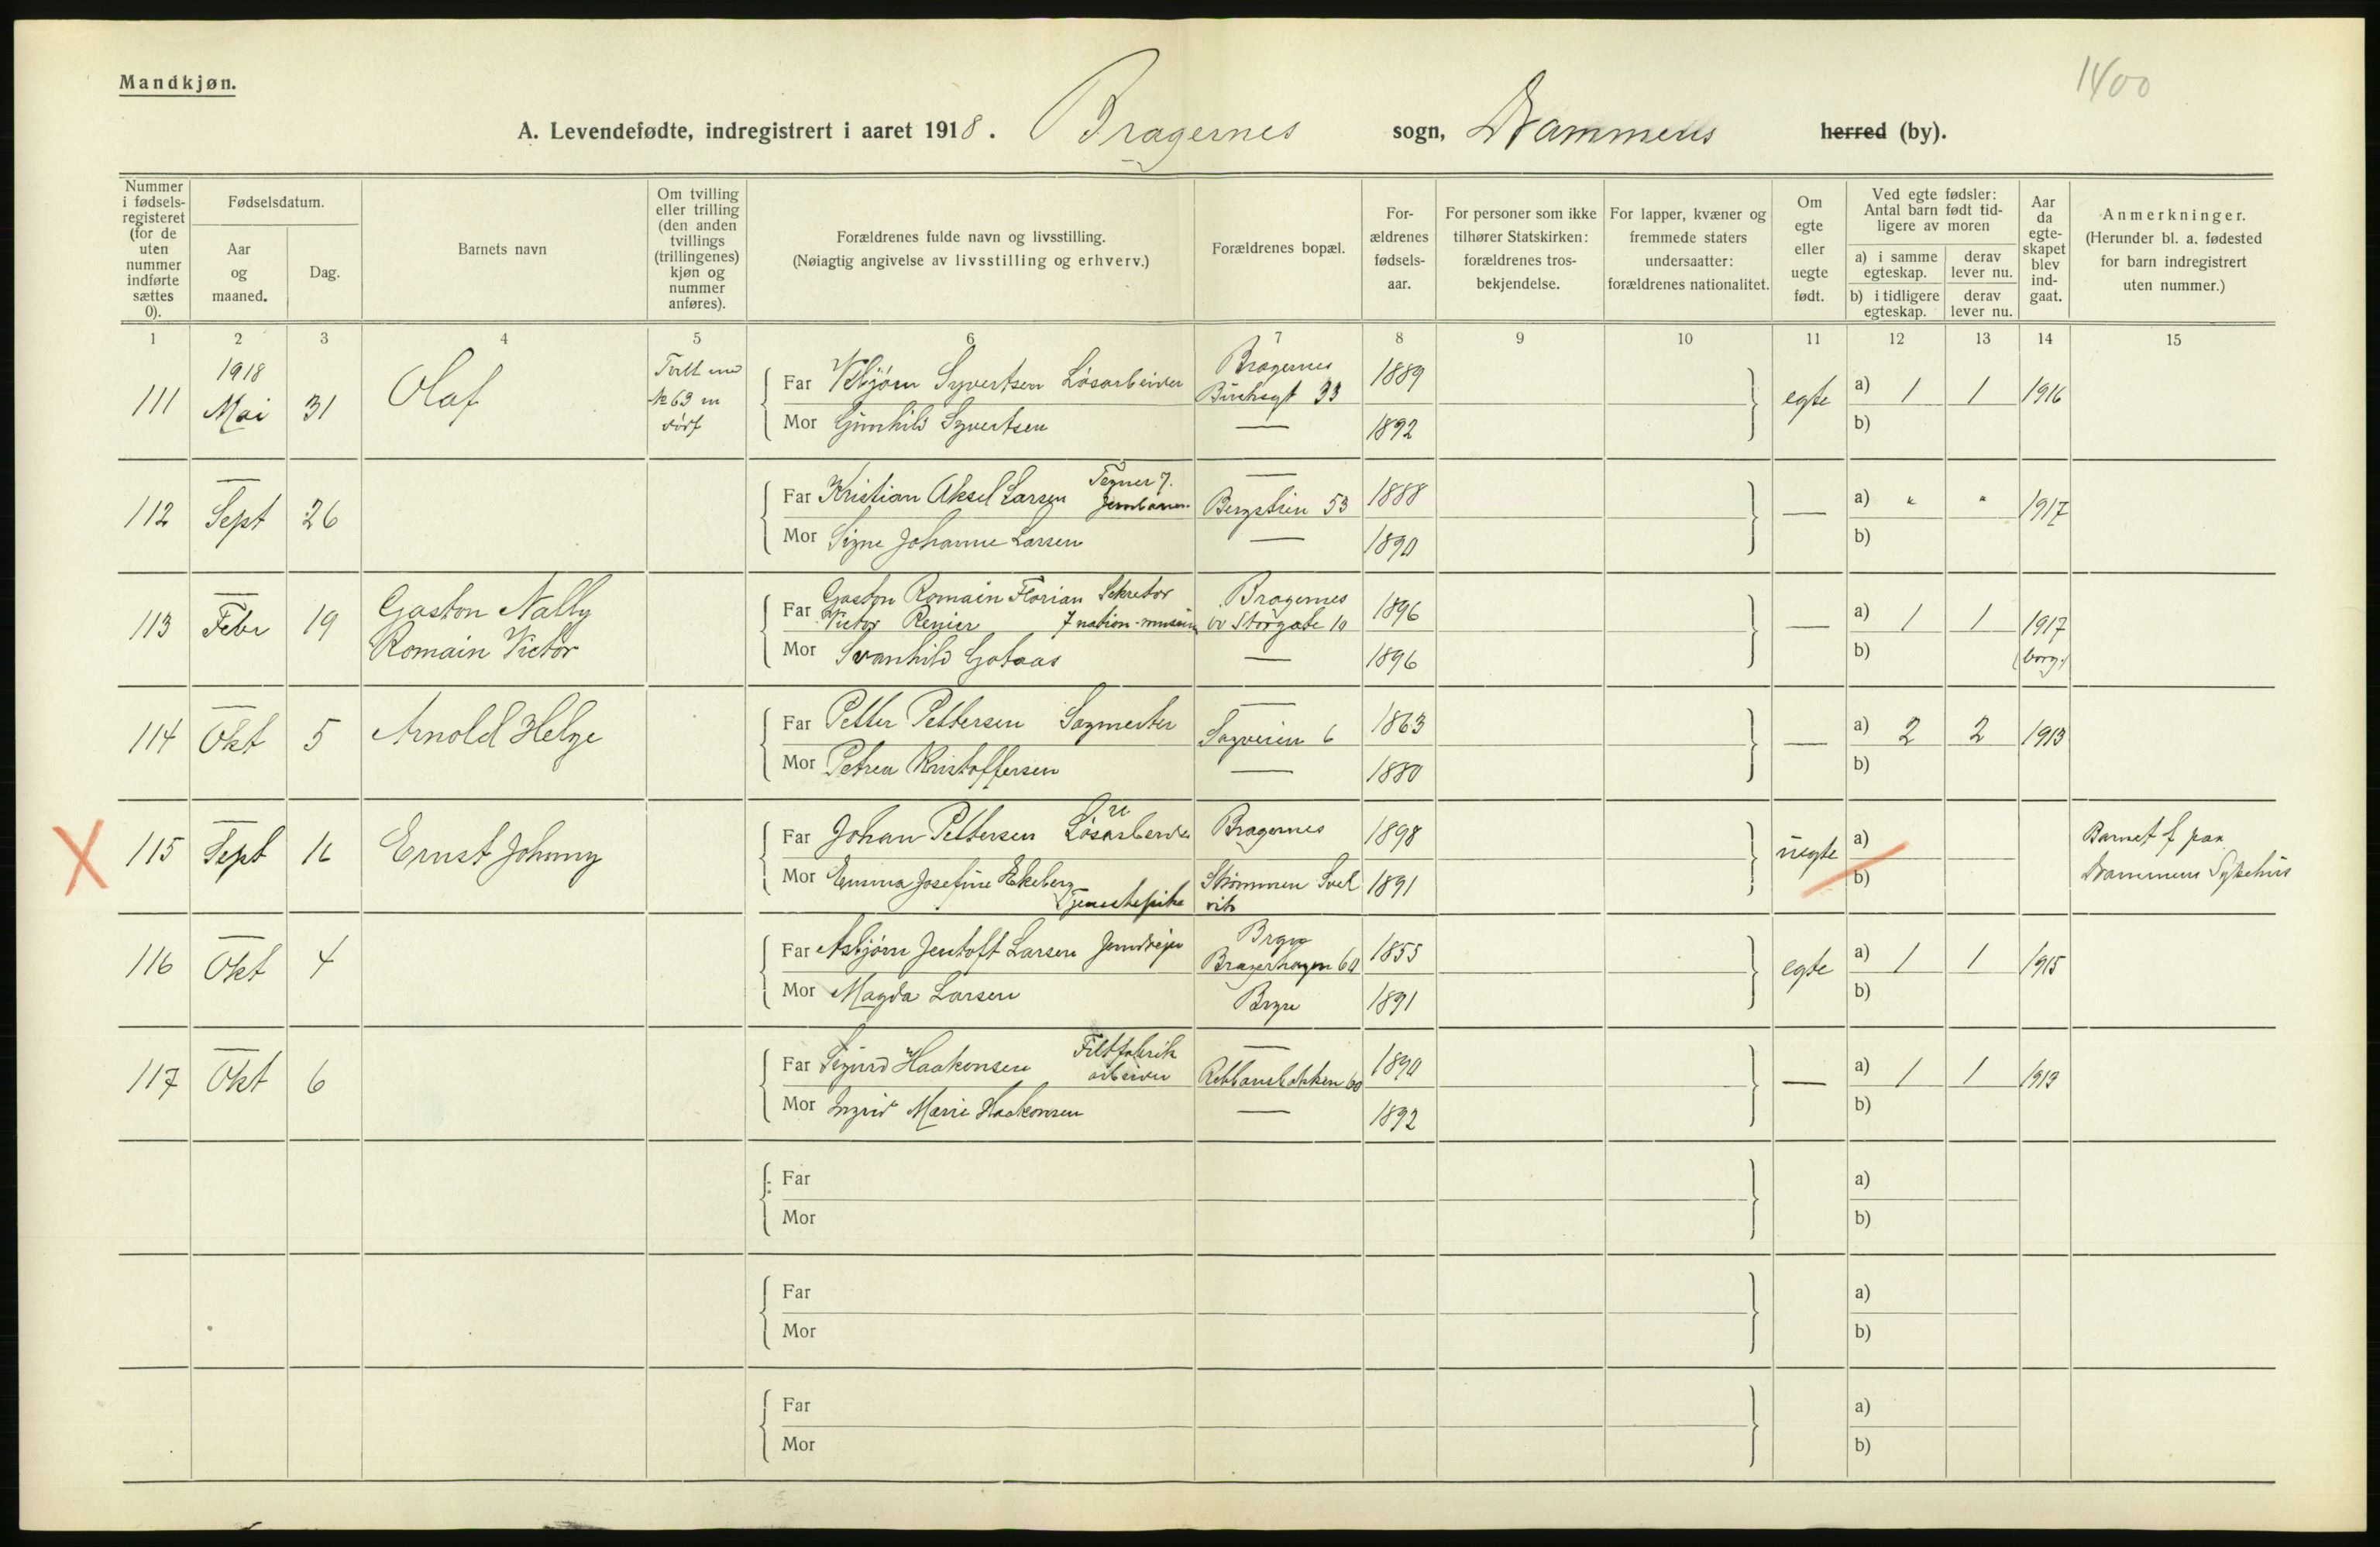 1400
Mandkjøn.
A. Levendefødte, indregistrert i aaret 1918. Bragernes sogn, Drammens herred (by).
Nummer i fødsels-registeret (for de uten nummer indførte sættes 0).
Fødselsdatum.
Aar og maaned.
Dag.
Barnets navn
Om tvilling eller trilling (den anden tvillings (trillingenes) kjøn og nummer anføres).
Forældrenes fulde navn og livsstilling.
(Nøiagtig angivelse av livsstilling og erhverv.)
Forældrenes bopæl.
For-ældrenes fødsels-aar.
For personer som ikke tilhører Statskirken: forældrenes tros-bekjendelse.
For lapper, kvæner og fremmede staters undersaatter: forældrenes nationalitet.
Om egte eller uegte født.
Ved egte fødsler: Antal barn født tid-ligere av moren
a) i samme egteskap.
derav lever nu.
b) i tidligere egteskap.
derav lever nu.
Aar da egte-skapet blev ind-gaat.
Anmerkninger.
(Herunder bl. a. fødested for barn indregistrert uten nummer.)
1 2 3 4 5 6 7 8 9 10 11 12 13 14 15
111 1918 Mai 31 Olaf
No 63
Far Syvertsen Løsarbeider Bragernes 33 1889 egte a) 1 1 1916
Mor Gunhild Syvertsen — 1892 b)
112 — Sept 26
Far Kristian Aksel Larsen — Bergstien 53 1888 — a) " " 1917
Mor Signe Johanne Larsen — 1890 b)
113 — Febr 19 Gaston Nally
Romain Victor
Far Gaston Romain Florian Sekretær
Victor Renier Bragernes
Storgate 10 1896 — a) 1 1 1917
(borg.)
Mor Svanhild Gotaas — 1896 b)
114 — Okt 5 Arnold Helge
Far Petter Pettersen Sagmester — Sagveien 6 1863 — a) 2 2 1913
Mor Petrea Kristoffersen — 1880 b)
X 115 — Sept 16 Ernst Johnny
Far Johan Pettersen Løsarbeider Bragernes 1898 uegte a)
Barnet f paa
Drammens Sykehus
Mor Emma Josefine Ekeberg
Tjenestepike Strømmen Svel
vik 1891 b)
116 — Okt 4
Far Asbjørn Jentoft Larsen 60 1855 egte a) 1 1 1915
Mor Magda Larsen 1891 b)
117 — Okt 6
Far Sigurd Haakonsen Filtfabrik
arbeider — 60 1890 — a) 1 1 1913
Mor Ingrid Marie Haakonsen — 1892 b)
Far a)
Mor b)
Far a)
Mor b)
Far a)
Mor b)